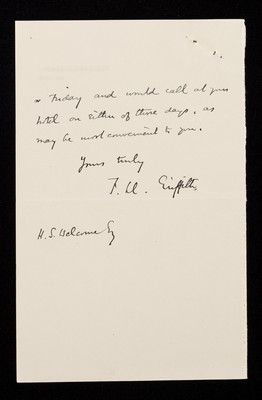 or Friday and would call at your
hotel on either of those days, as
may be most convenient to you.
Yours truly
F. Ll. Griffith
H. S. Wellcome Esq